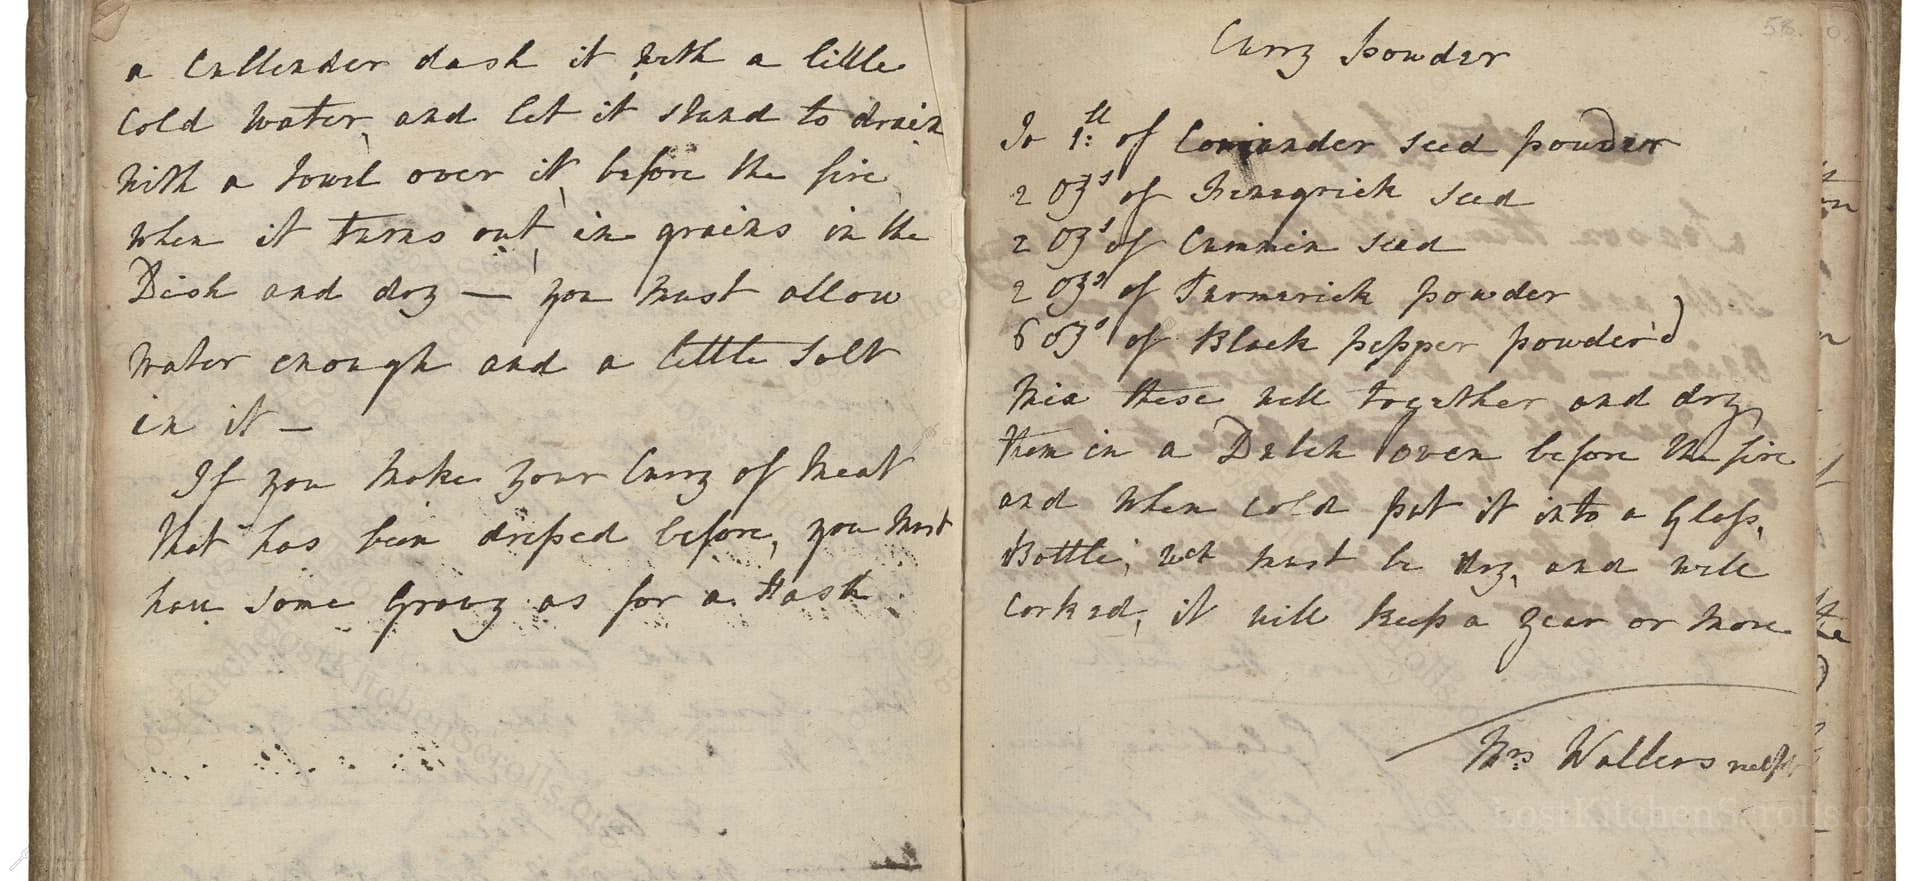 a Cullender dash it with a little
Cold Water, and let it stand to drain
with a Towel over it, before the fire,
when it turns out, in grains in the
Dish and dry — you must allow
water enough and a little Salt
in it —
If you make your Curry of meat
that has been dressed before, you must
have some Gravy as for a Hash
58.
Curry Powder
To 1 lb of Coriander seed powder
2 ozs of Fenegrick seed
2 ozs of Cummin seed
2 ozs of Turmerick powder
6 ozs of Black pepper powder'd
mix these well together and dry
them in a Dutch oven before the fire
and when cold put it into a Glass,
Bottle, wch must be dry, and well
corked, it will keep a year or more
Mrs Wallers
LostKitchenScrolls.or